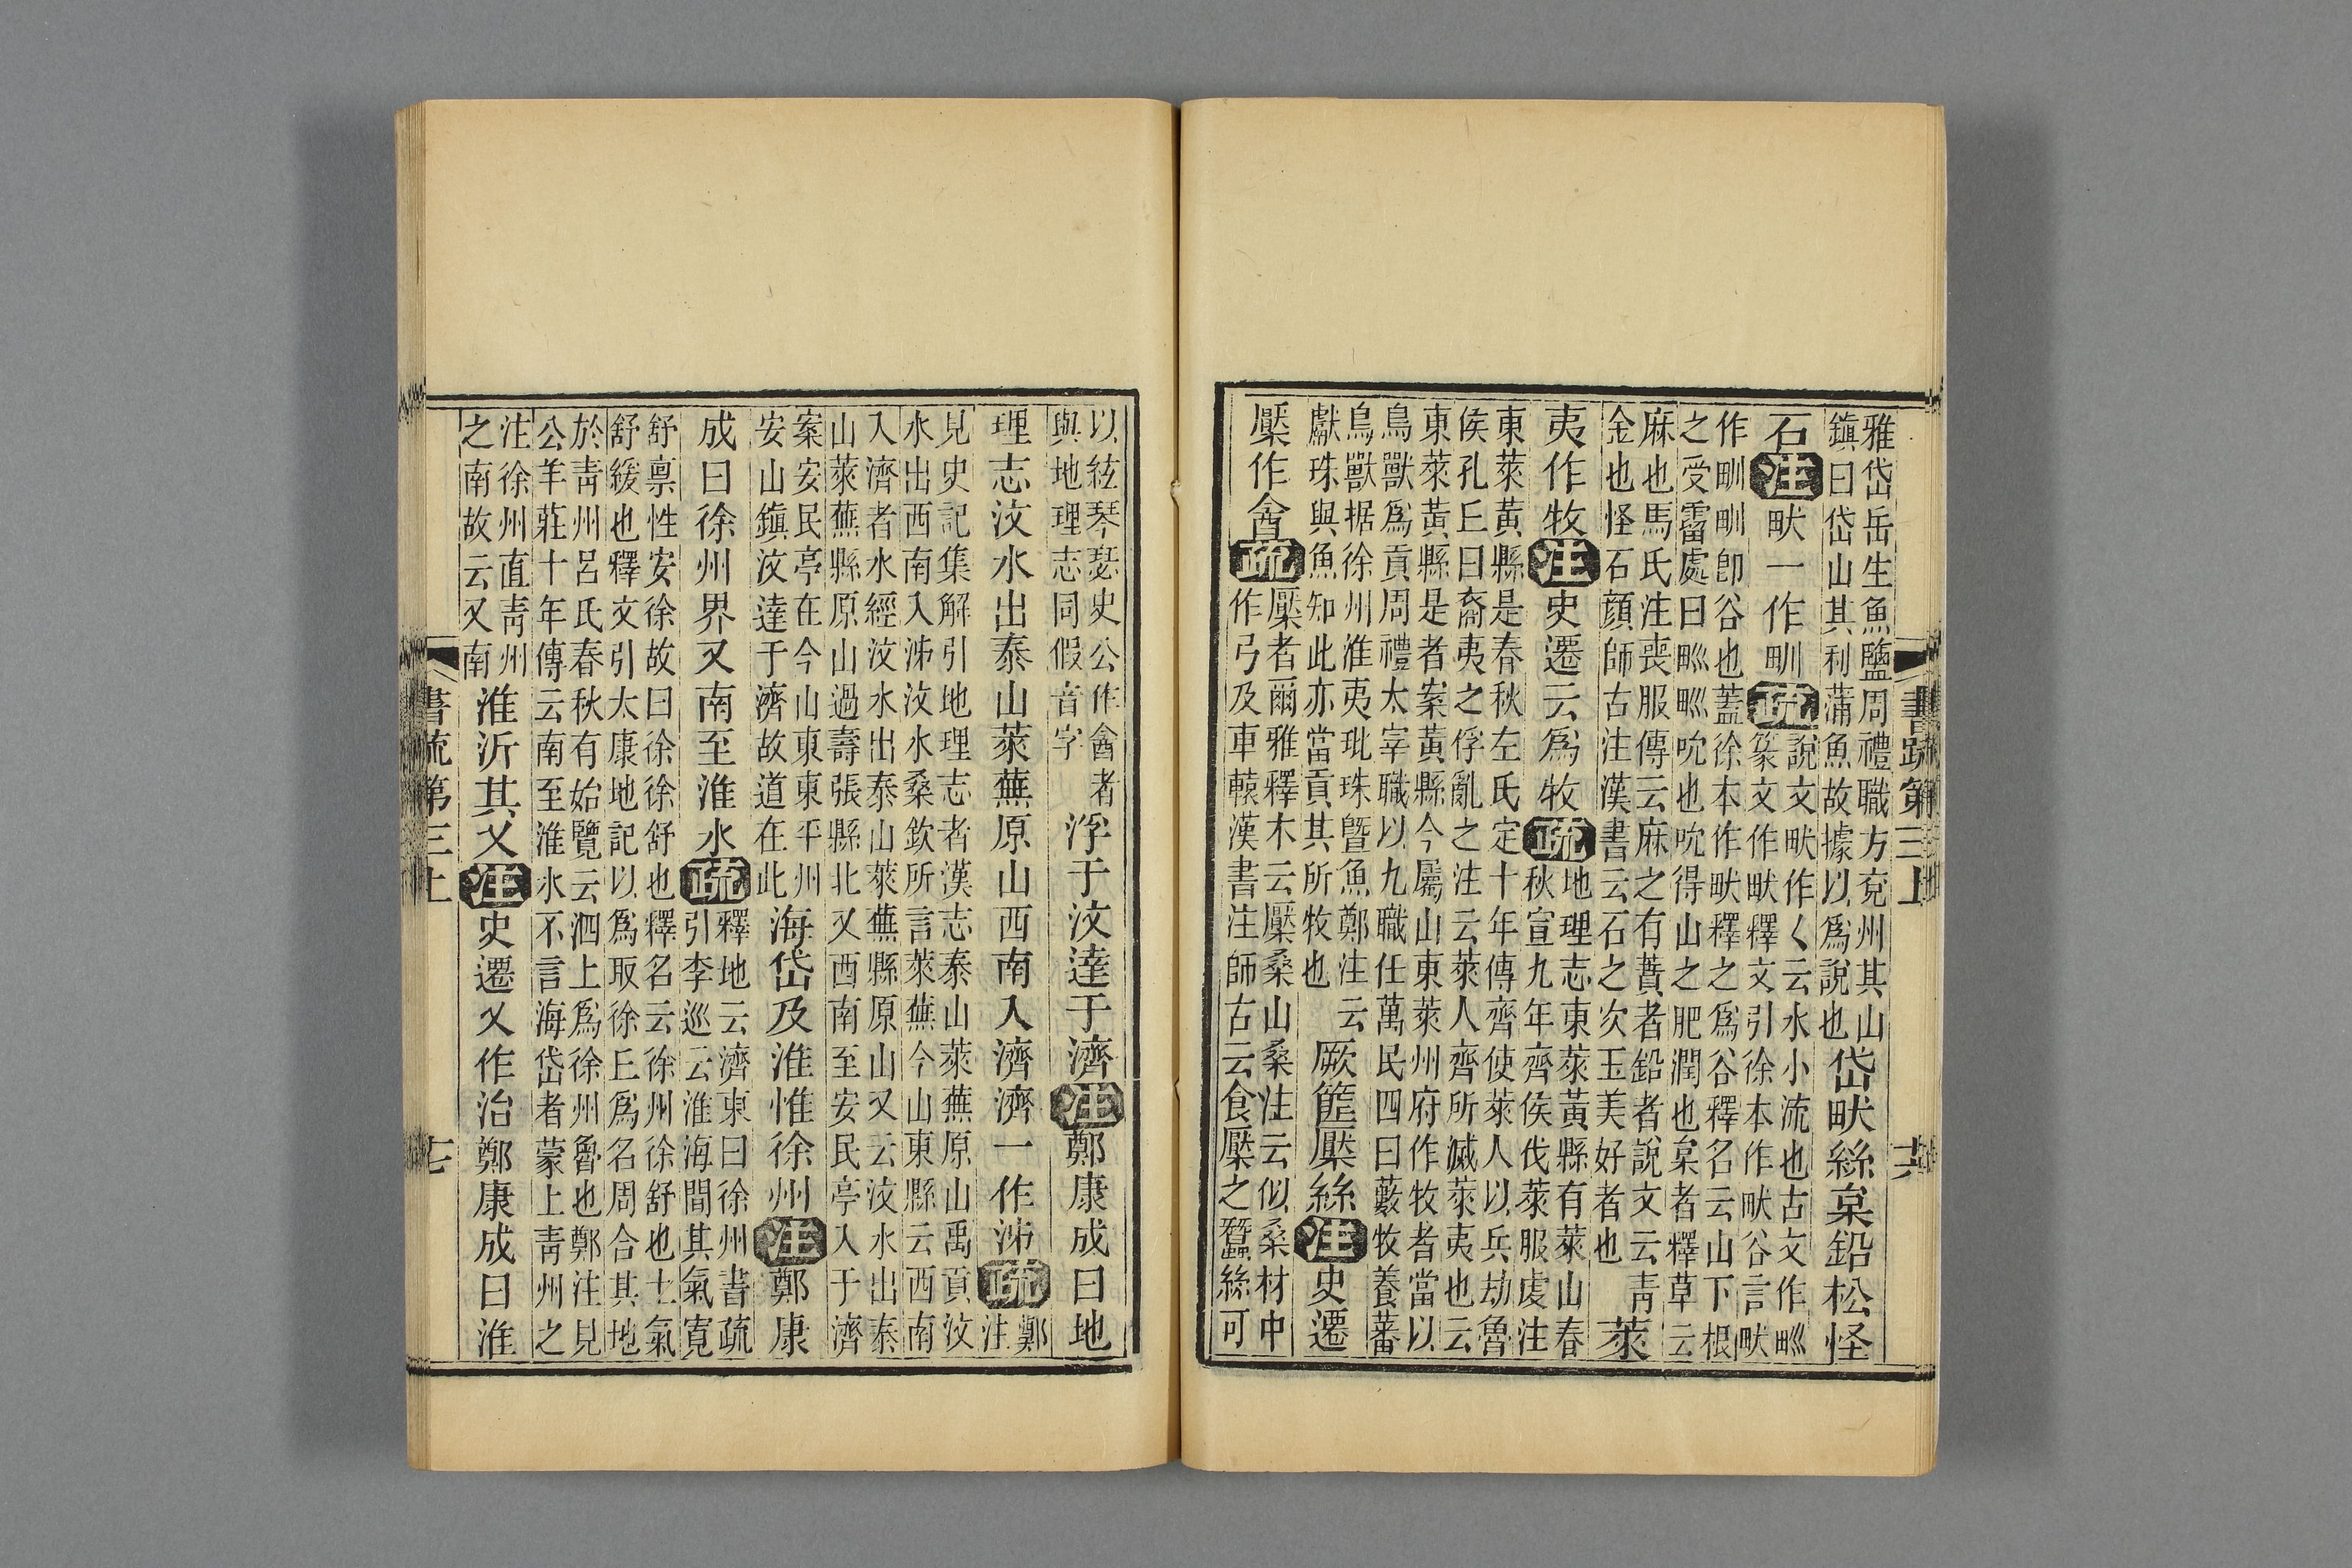 書疏第三上 十六
雅岱岳生魚鹽周禮職方兗州其山
鎮曰岱山其利蒲魚故據以爲說也
岱畎絲枲鉛松怪
石注畎一作甽疏
說文畎作く云水小流也古文作𤰕
篆文作畎釋文引徐本作畎谷言畎
作甽甽卽谷也蓋徐本作畎釋之爲谷釋名云山下根
之受霤處曰𤰕𤰕吮也吮得山之肥潤也枲者釋草云
麻也馬氏注喪服傳云麻之有蕡者鉛者說文云青
金也怪石顏師古注漢書云石之次玉美好者也
萊
夷作牧注史遷云爲牧疏
地理志東萊黃縣有萊山春
秋宣九年齊侯伐萊服虔注
東萊黃縣是春秋左氏定十年傳齊使萊人以兵劫魯
侯孔丘曰裔夷之俘亂之注云萊人齊所滅萊夷也云
東萊黃縣是者案黃縣今屬山東萊州府作牧者當以
鳥獸爲貢周禮太宰職以九職任萬民四曰藪牧養蕃
鳥獸据徐州淮夷玭珠曁魚鄭注云
獻珠與魚知此亦當貢其所牧也
厥篚檿絲注史遷
檿作酓疏
檿者爾雅釋木云檿桑山桑注云似桑材中
作弓及車轅漢書注師古云食檿之蠶絲可
以絃琴瑟史公作酓者
與地理志同假音字
浮于汶達于濟注鄭康成曰地
理志汶水出泰山萊蕪原山西南入濟濟一作泲疏
鄭
注
見史記集解引地理志者漢志泰山萊蕪原山禹貢汶
水出西南入泲汶水桑欽所言萊蕪今山東縣云西南
入濟者水經汶水出泰山萊蕪縣原山又云汶水出泰
山萊蕪縣原山過壽張縣北又西南至安民亭入于濟
案安民亭在今山東東平州
安山鎮汶達于濟故道在此
海岱及淮惟徐州注鄭康
成曰徐州界又南至淮水疏
釋地云濟東曰徐州書疏
引李巡云淮海間其氣寬
舒禀性安徐故曰徐徐舒也釋名云徐州徐舒也土氣
舒緩也釋文引太康地記以爲取徐丘爲名周合其地
於青州呂氏春秋有始覽云泗上爲徐州魯也鄭注見
公羊莊十年傳云南至淮水不言海岱者蒙上青州之
注徐州直青州
之南故云又南
淮沂其乂注史遷乂作治鄭康成曰淮
書疏第三上 十七